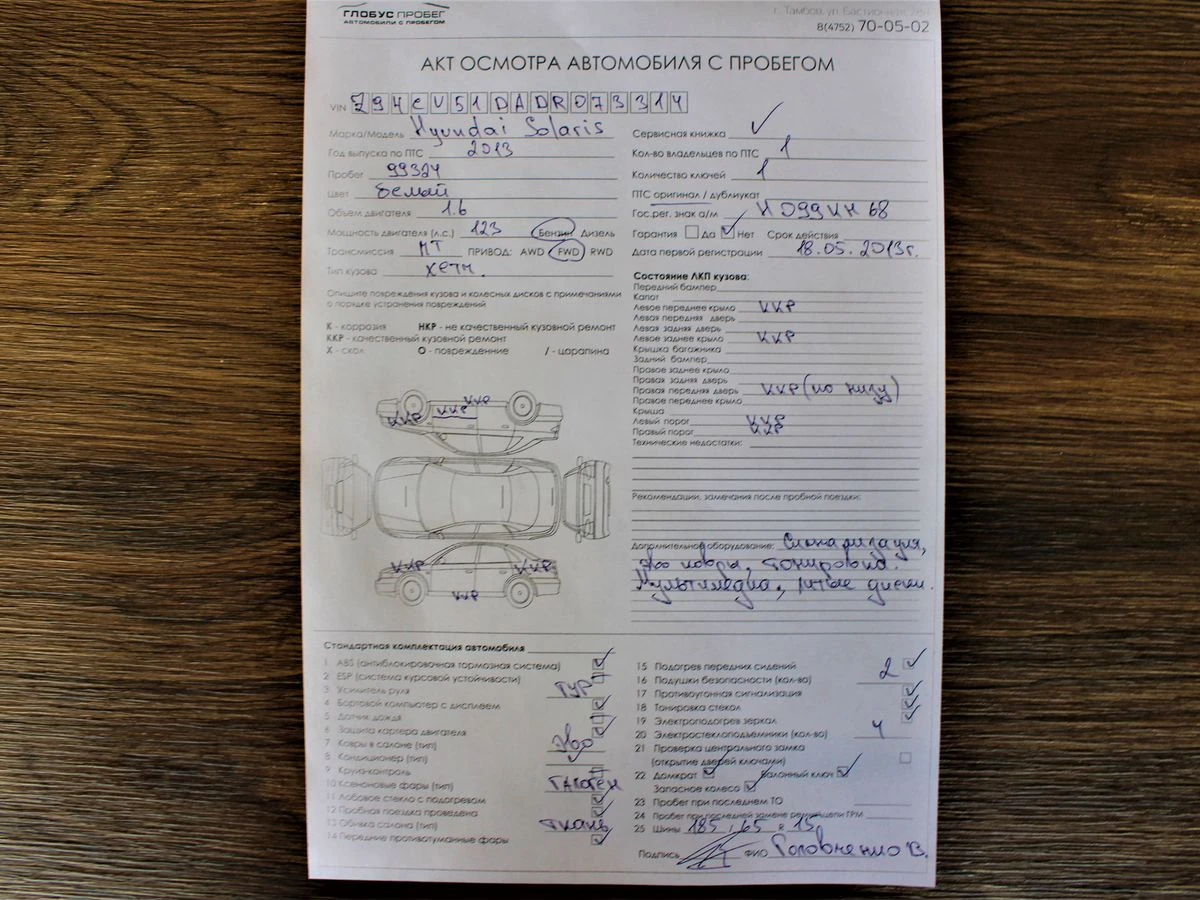 ГЛОБУС ПРОБЕГ
АВТОМОБИЛИ С ПРОБЕГОМ
г. Тамбов, ул. Бастионная,
8(4752) 70-05-02
АКТ ОСМОТРА АВТОМОБИЛЯ С ПРОБЕГОМ
VIN Z94CU51DADR073314
Марка/Модель Hyundai Solaris
Год выпуска по ПТС 2013
Пробег 99324
Цвет белый
Объем двигателя 1.6
Мощность двигателя (л.с.) 123 Бензин Дизель
Трансмиссия МТ ПРИВОД: AWD FWD RWD
Тип кузова хетч.
Опишите повреждения кузова и колесных дисков с примечаниями
о порядке устранения повреждений
К - коррозия НКР - не качественный кузовной ремонт
ККР - качественный кузовной ремонт
Х - скол О - повреждение / - царапина
ККР ККР ККР
ККР ККР
ККР
Сервисная книжка ✓
Кол-во владельцев по ПТС 1
Количество ключей 1
ПТС оригинал / дубликат
Гос.рег. знак а/м Н099КН 68
Гарантия Да ✓ Нет Срок действия
Дата первой регистрации 18.05.2013г.
Состояние ЛКП кузова:
Передний бампер
Капот
Левое переднее крыло ККР
Левая передняя дверь
Левая задняя дверь
Левое заднее крыло ККР
Крышка багажника
Задний бампер
Правое заднее крыло
Правая задняя дверь
Правая передняя дверь ККР (по низу)
Правое переднее крыло
Крыша
Левый порог ККР
Правый порог ККР
Технические недостатки:
Рекомендации, замечания после пробной поездки:
Дополнительное оборудование: Сигнализация,
эво ковры, тонировка.
Мультимедиа, литые диски.
Стандартная комплектация автомобиля
1 ABS (антиблокировочная тормозная система) ✓
2 ESP (система курсовой устойчивости)
3 Усилитель руля ГУР
4 Бортовой компьютер с дисплеем ✓
5 Датчик дождя
6 Защита картера двигателя ✓
7 Ковры в салоне (тип) эво
8 Кондиционер (тип)
9 Круиз-контроль
10 Ксеноновые фары (тип) галоген
11 Лобовое стекло с подогревом ✓
12 Пробная поездка проведена ✓
13 Обивка салона (тип) ткань
14 Передние противотуманные фары ✓
15 Подогрев передних сидений ✓
16 Подушки безопасности (кол-во) 2
17 Противоугонная сигнализация ✓
18 Тонировка стекол ✓
19 Электроподогрев зеркал ✓
20 Электростеклоподъемники (кол-во) 4
21 Проверка центрального замка
(открытие дверей ключами)
22 Домкрат ✓ Балонный ключ ✓
Запасное колесо ✓
23 Пробег при последнем ТО
24 Пробег при последней замене ремня/цепи ГРМ
25 Шины 185, 65, 15
Подпись ФИО Головченко В.